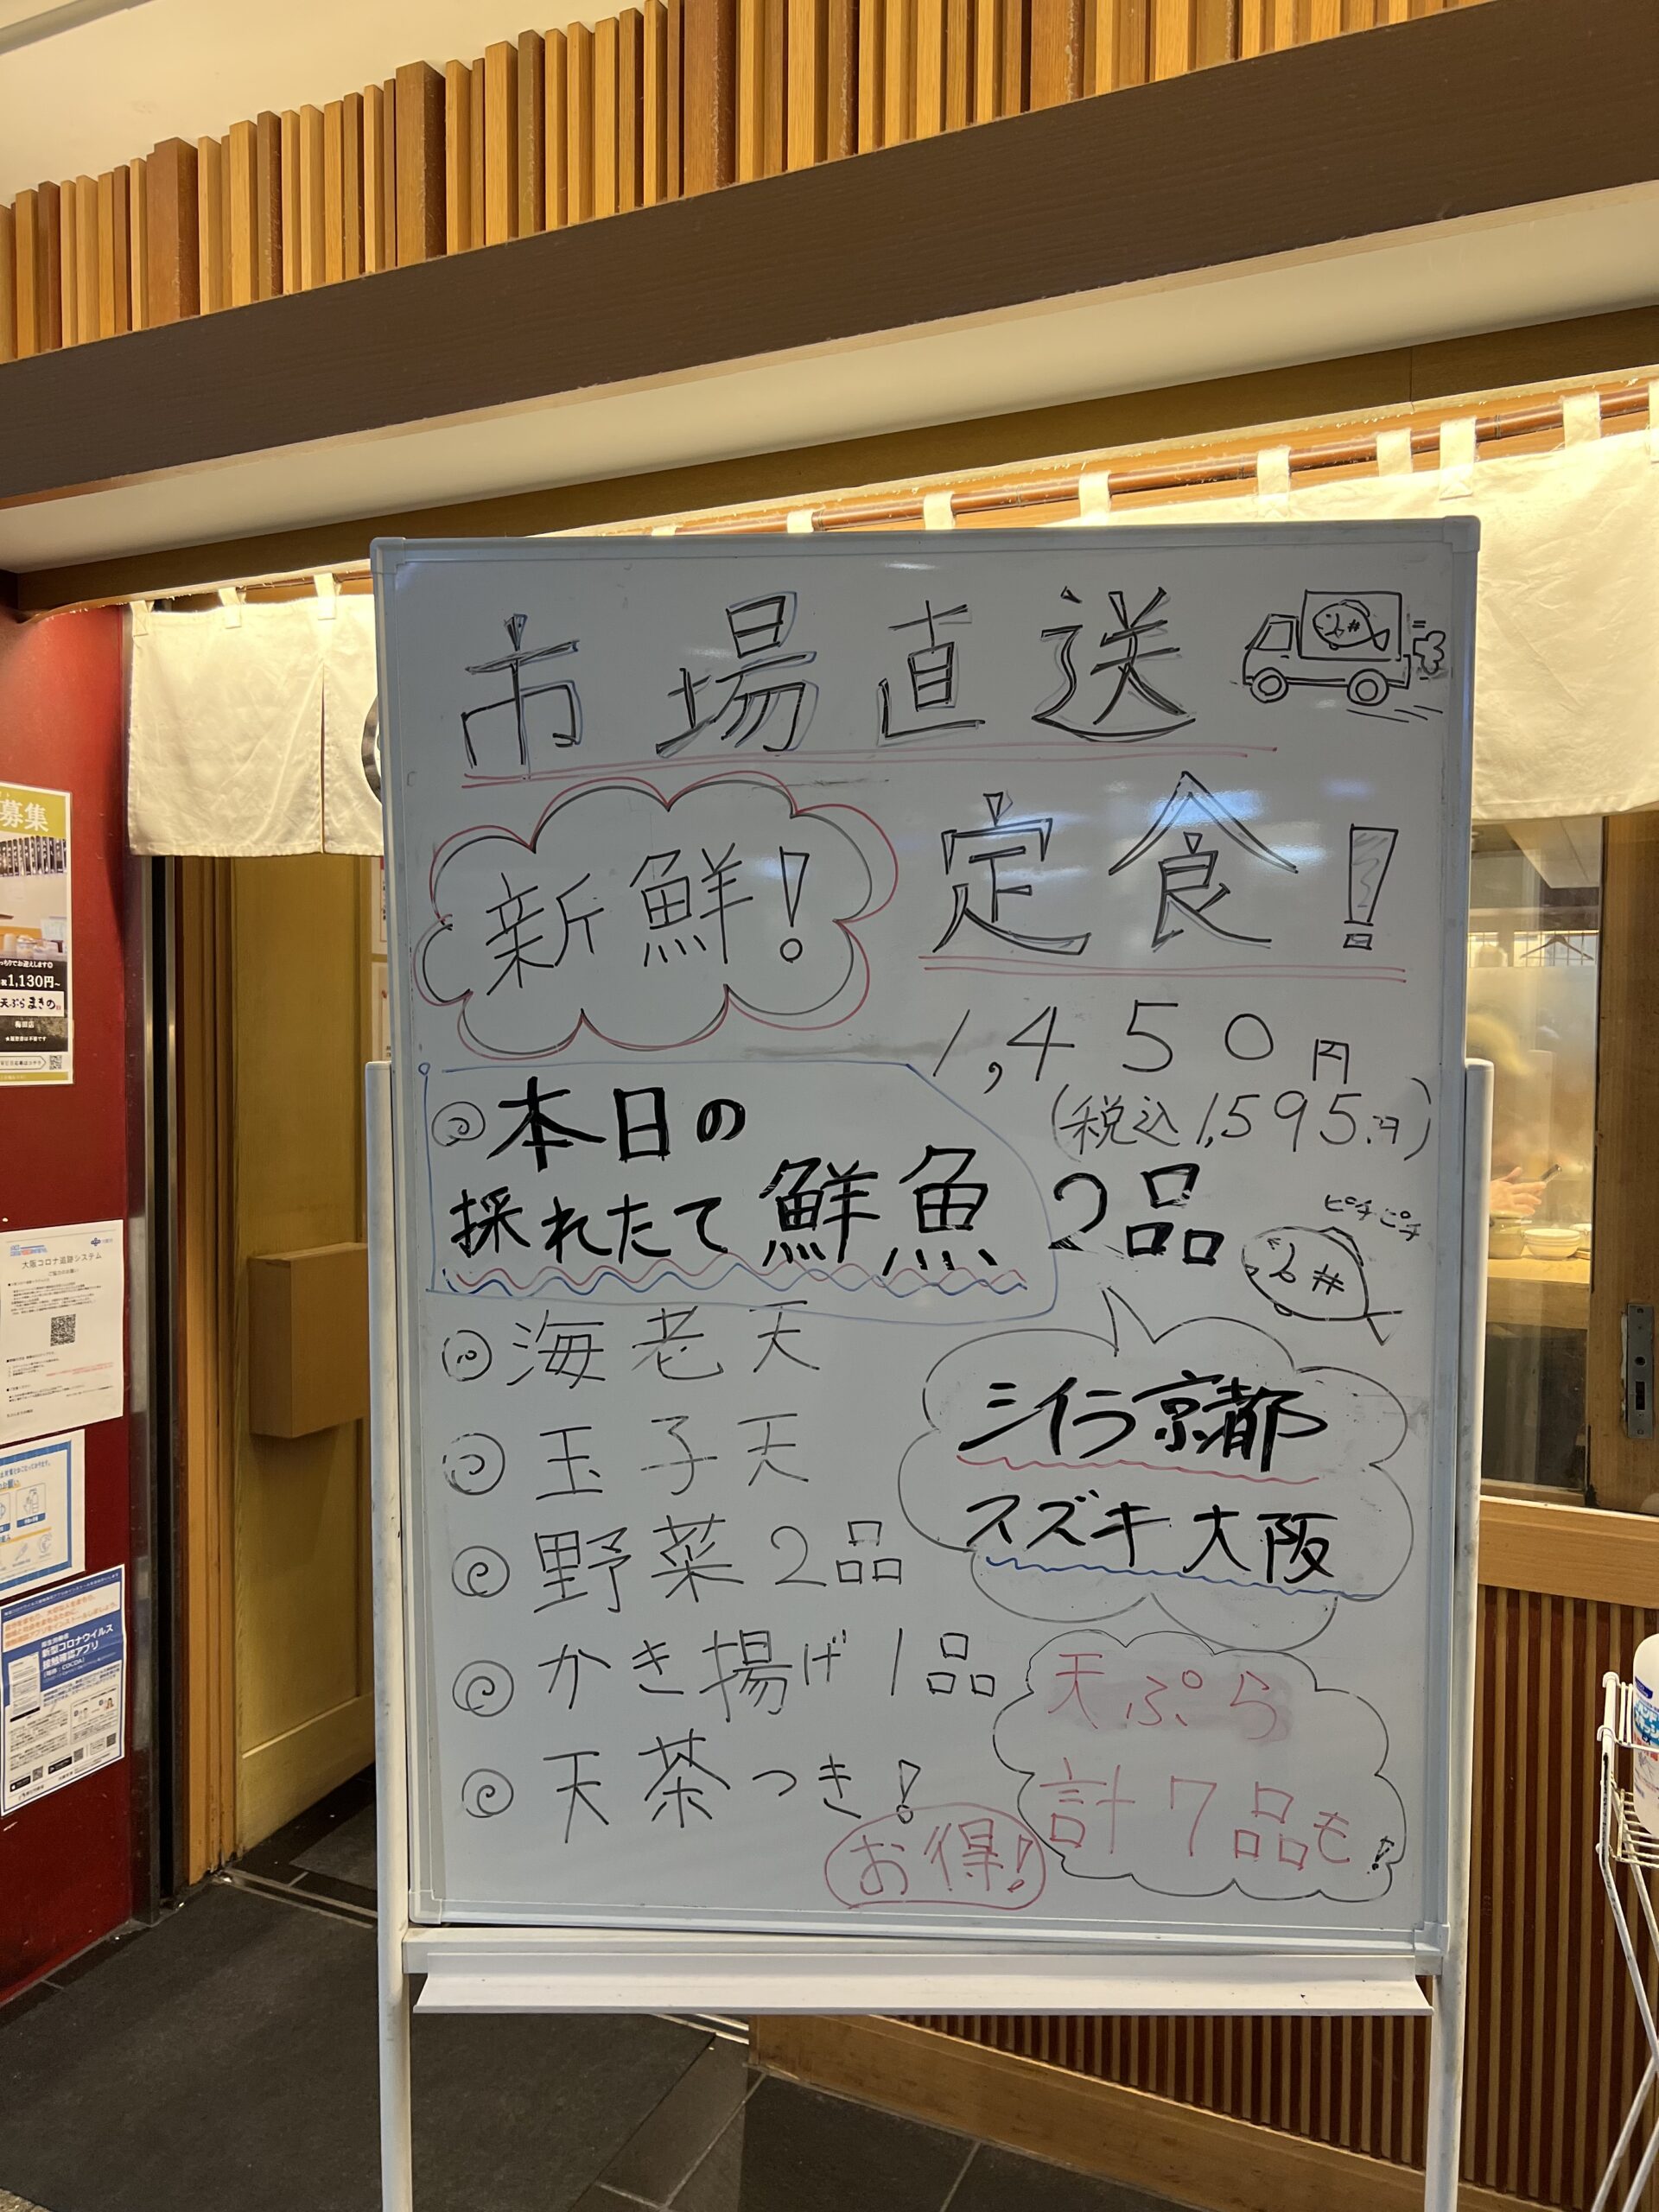 市場直送
新鮮!
定食!
1,450円
(税込1,595円)
本日の
採れたて鮮魚 2品
ピチピチ
海老天
シイラ京都
玉子天
スズキ 大阪
野菜2品
かき揚げ 1品
天ぷら
計7品も!
天茶つき!
お得!
募集
1,130円~
天ぷら まきの
梅田店
大阪コロナ追跡システム
新型コロナウイルス
接触確認アプリ